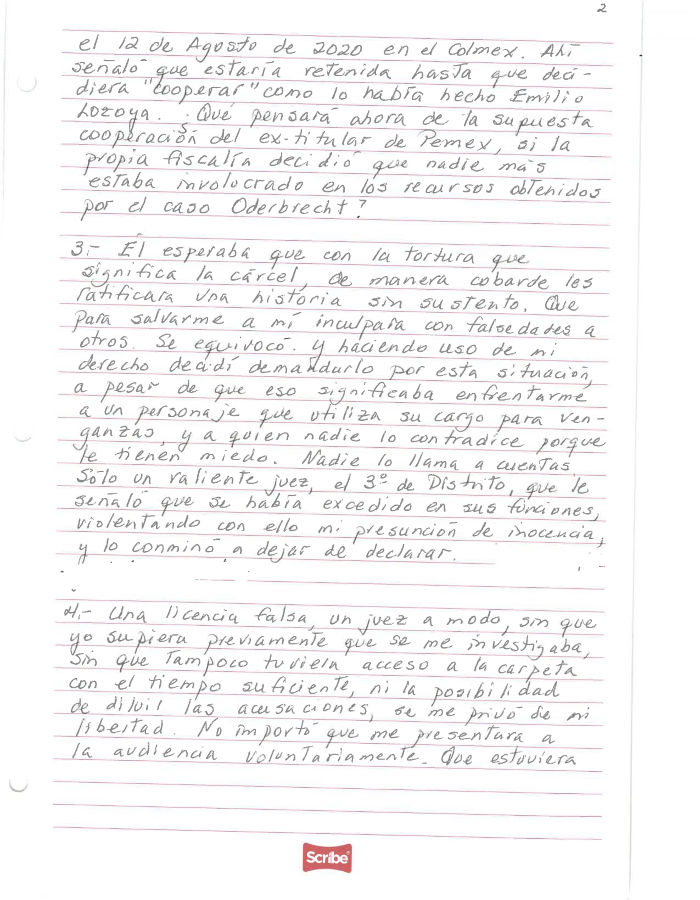 2
el 12 de Agosto de 2020 en el Colmex. Ahí
señaló que estaría retenida hasta que deci-
diera "cooperar" como lo había hecho Emilio
Lozoya. ¿Qué pensará ahora de la supuesta
cooperación del ex-titular de Pemex, si la
propia fiscalía decidió que nadie más
estaba involucrado en los recursos obtenidos
por el caso Oderbrecht?
3.- El esperaba que con la tortura que
significa la cárcel, de manera cobarde les
ratificara una historia sin sustento. Que
para salvarme a mí inculpara con falsedades a
otros. Se equivocó. y haciendo uso de mi
derecho decidí demandarlo por esta situación,
a pesar de que eso significaba enfrentarme
a un personaje que utiliza su cargo para ven-
ganzas, y a quien nadie lo contradice porque
le tienen miedo. Nadie lo llama a cuentas
Sólo un valiente juez, el 3º de Distrito, que le
señaló que se había excedido en sus funciones,
violentando con ello mi presunción de inocencia,
y lo conminó a dejar de declarar.
4.- Una licencia falsa, un juez a modo, sin que
yo supiera previamente que se me investigaba,
sin que tampoco tuviera acceso a la carpeta
con el tiempo suficiente, ni la posibilidad
de diluir las acusaciones, se me privó de mi
libertad. No importó que me presentara a
la audiencia voluntariamente. Que estuviera
Scribe